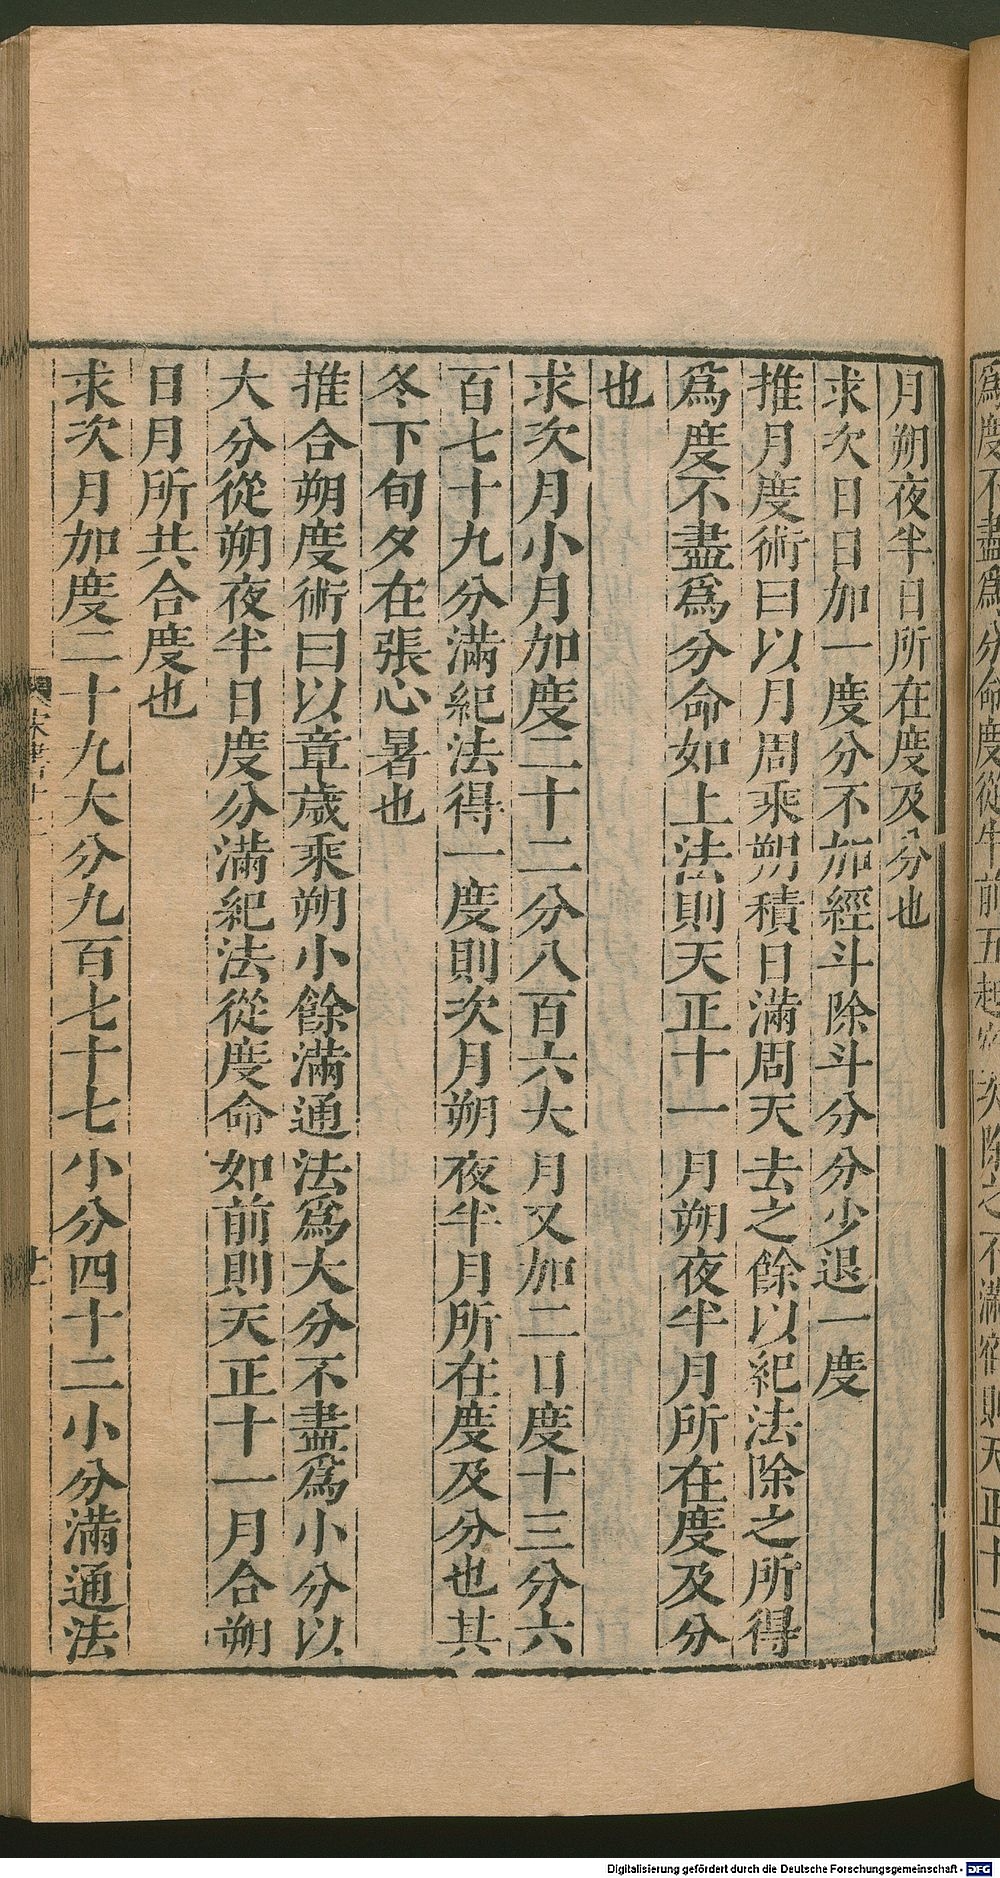 爲度不盡爲分命度從牛前五起宿次除之不滿宿則天正十一
月朔夜半日所在度及分也
求次日日加一度分不加經斗除斗分分少退一度
推月度術曰以月周乘朔積日滿周天去之餘以紀法除之所得
爲度不盡爲分命如上法則天正十一月朔夜半月所在度及分
也
求次月小月加度二十二分八百六大月又加二日度十三分六
百七十九分滿紀法得一度則次月朔夜半月所在度及分也其
冬下旬夕在張心暑也
推合朔度術曰以章歲乘朔小餘滿通法爲大分不盡爲小分以
大分從朔夜半日度分滿紀法從度命如前則天正十一月合朔
日月所共合度也
求次月加度二十九大分九百七十七小分四十二小分滿通法
宋書十二
廿一
Digitalisierung gefördert durch die Deutsche Forschungsgemeinschaft - DFG